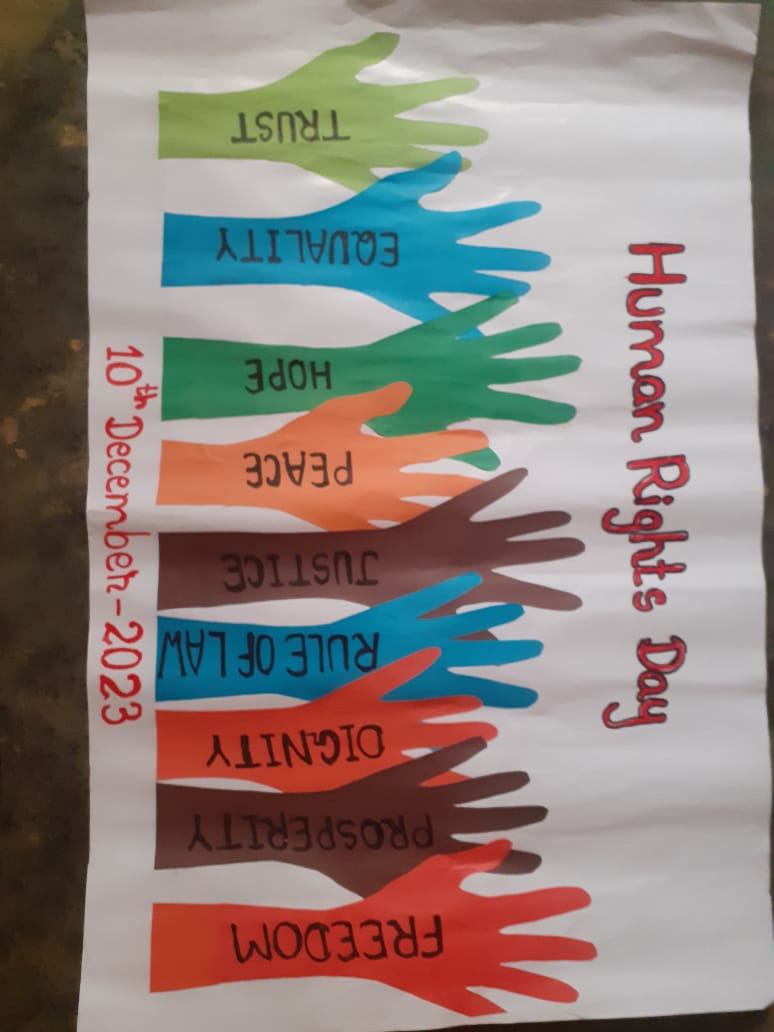 Human Rights Day
TRUST
EQUALITY
HOPE
PEACE
JUSTICE
RULE OF LAW
DIGNITY
PROSPERITY
FREEDOM
10th December-2023